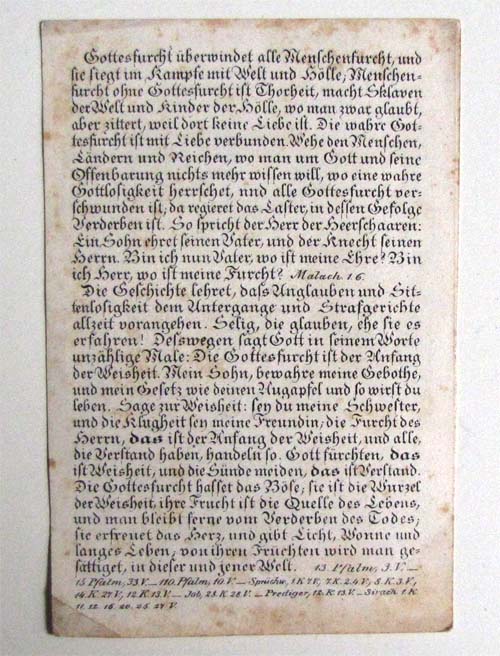 Gottesfurcht überwindet alle Menschenfurcht, und
sie siegt im Kampfe mit Welt und Hölle; Menschen-
furcht ohne Gottesfurcht ist Thorheit, macht Sklaven
der Welt und Kinder der Hölle, wo man zwar glaubt,
aber zittert, weil dort keine Liebe ist. Die wahre Got-
tesfurcht ist mit Liebe verbunden. Wehe den Menschen,
Ländern und Reichen, wo man um Gott und seine
Offenbarung nichts mehr wissen will, wo eine wahre
Gottlosigkeit herrschet, und alle Gottesfurcht ver-
schwunden ist; da regieret das Laster, in dessen Gefolge
Verderben ist. So spricht der Herr der Heerschaaren:
Ein Sohn ehret seinen Vater, und der Knecht seinen
Herrn. Bin ich nun Vater, wo ist meine Ehre? Bin
ich Herr, wo ist meine Furcht? Malach. 1. 6.
Die Geschichte lehret, dass Unglauben und Sit-
tenlosigkeit dem Untergange und Strafgerichte
allzeit vorangehen. Selig, die glauben, ehe sie es
erfahren! Desswegen sagt Gott in seinem Worte
unzählige Male: Die Gottesfurcht ist der Anfang
der Weisheit. Mein Sohn, bewahre meine Gebothe,
und mein Gesetz wie deinen Augapfel und so wirst du
leben. Sage zur Weisheit: sey du meine Schwester,
und die Klugheit sey meine Freundin; die Furcht des
Herrn, das ist der Anfang der Weisheit, und alle,
die Verstand haben, handeln so. Gott fürchten, das
ist Weisheit, und die Sünde meiden, das ist Verstand.
Die Gottesfurcht hasset das Böse; sie ist die Wurzel
der Weisheit, ihre Frucht ist die Quelle des Lebens,
und man bleibt ferne vom Verderben des Todes;
sie erfreuet das Herz, und gibt Licht, Wonne und
langes Leben; von ihren Früchten wird man ge-
sättiget, in dieser und jener Welt. 13. Psalm, 3. V. —
15 Psalm, 33 V. — 110. Psalm, 10. V. — Sprüchw. 1. K. 7 V., 7. K. 2. 4 V., 8. K. 3. V.,
14. K. 27. V., 12. K. 13. V. — Job, 28. K. 28. V. — Prediger, 12. K. 13. V. — Sirach 1. K.
11. 12. 16. 20. 25. 27 V.